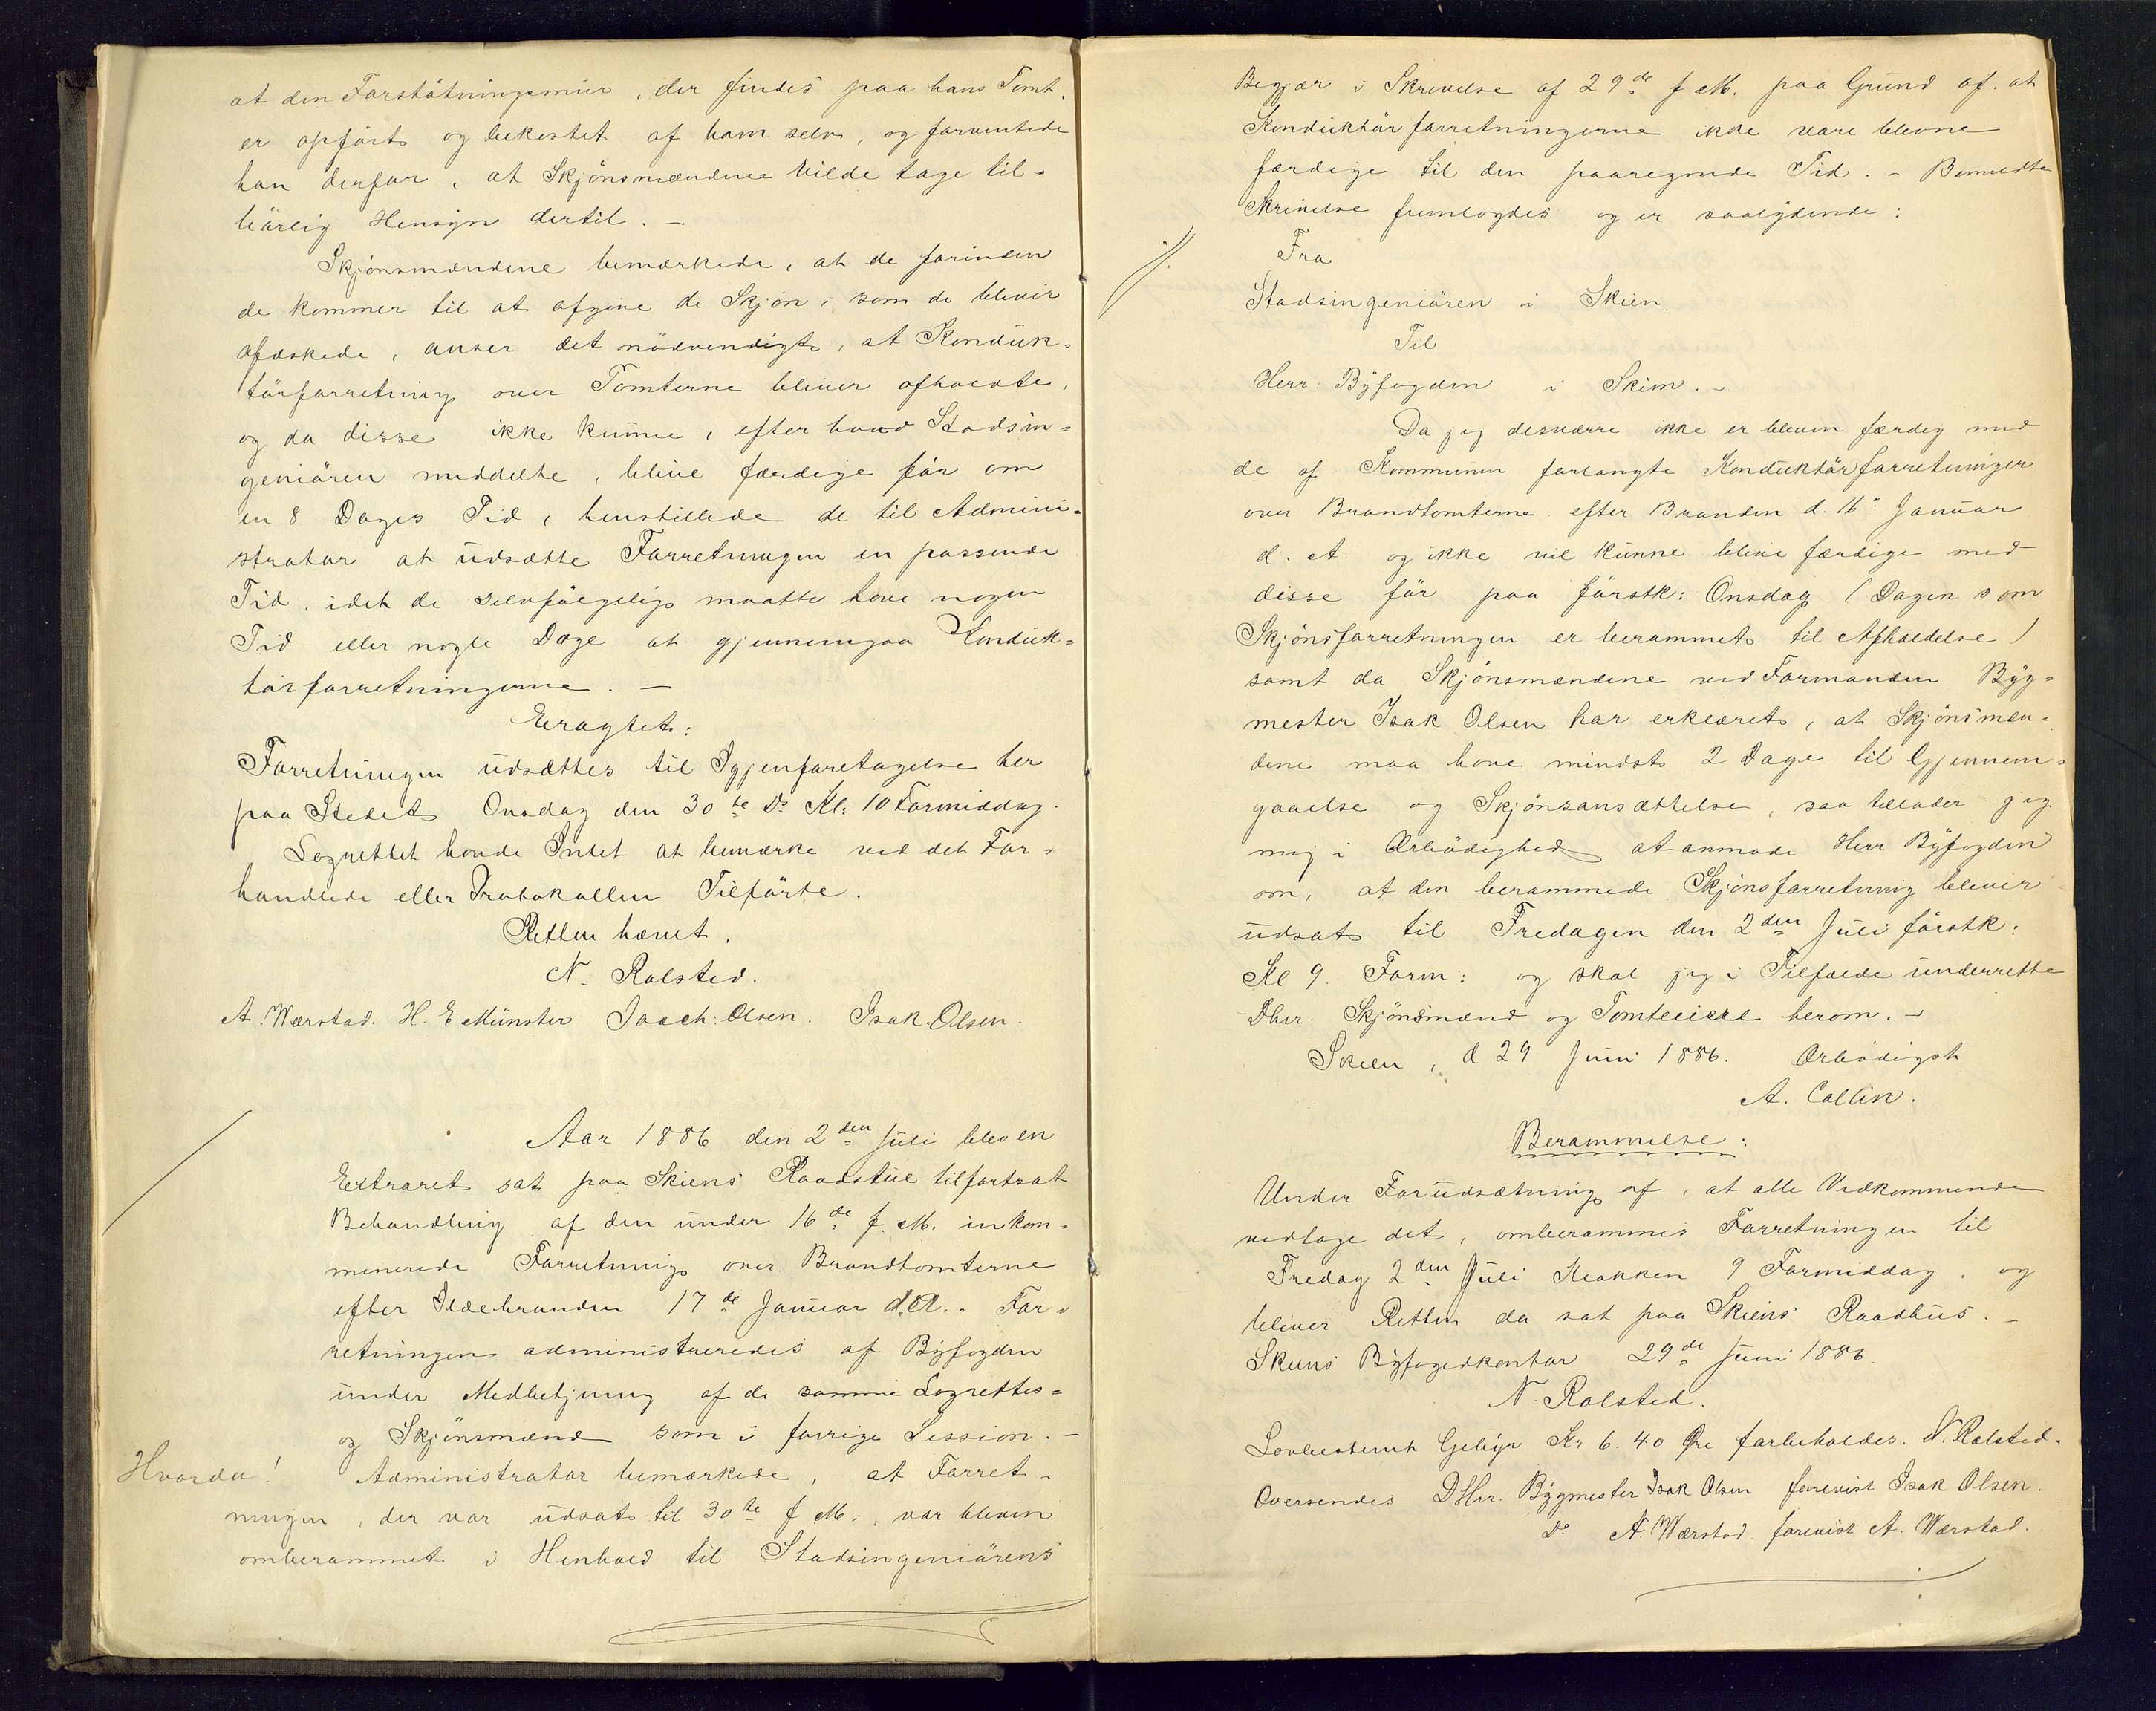 at den Forstøtningsmur, der findes paa hans Tomt,
er opført og bekostet af ham selv, og forventede
han derfor, at Skjønsmændene vilde tage til-
børlig Hensyn dertil. —
Skjønsmændene bemærkede, at de forinden
de kommer til at afgive de Skjøn, som de bliver
afæskede, anser det nødvendigt, at Konduk-
tørforretning over Tomterne bliver afholdte,
og da disse ikke kunne, efter hvad Stadsin-
geniøren meddelte, blive færdige før om
en 8 Dages Tid, henstillede de til Admini-
strator at udsætte Forretningen en passende
Tid, idet de selvfølgelig maatte have nogen
Tid eller nogle Dage at gjennemgaa Konduk-
tørforretningerne. —
Eragtet:
Forretningen udsættes til Igjenforetagelse her
paa Stedet Onsdag den 30te Ds Kl: 10 Formiddag.
Lagrettet havde Intet at bemærke ved det For-
handlede eller Protokollen Tilførte.
Retten hævet.
N. Rolsted.
A. Wærstad. H. E Münster Joach: Olsen. Isak Olsen.
Aar 1886 den 2den Juli blev en
Extraret sat paa Skiens Raadstue til fortsat
Behandling af den under 16de f. M. inkam-
minerede Forretning over Brandtomterne
efter Ildebranden 17de Januar d. A. - For-
retningen administreredes af Byfogden
under Medbetjening af de samme Lagrettes-
og Skjønsmænd som i forrige Session. —
Hvorda! Administrator bemærkede, at Forret-
ningen, der var udsat til 30te f. M., var bleven
omberammet i Henhold til Stadsingeniørens
Begjær i Skrivelse af 29de f. M. paa Grund af, at
Konduktørforretningerne ikke vare blevne
færdige til den paaregnede Tid. - Bemeldte
Skrivelse fremlagdes og er saalydende:
Fra
Stadsingeniøren i Skien.
Til
Herr: Byfogden i Skien. -
Da jeg desværre ikke er bleven færdig med
de af Kommunen forlangte Konduktørforretninger
over Brandtomterne efter Branden d. 16' Januar
d. A. og ikke vil kunne blive færdige med
disse før paa førstk: Onsdag (Dagen som
Skjønsforretningen er berammet til Afholdelse)
samt da Skjønsmændene ved Formanden Byg-
mester Isak Olsen har erklæret, at Skjønsmæn-
dene maa have mindst 2 Dage til Gjennem-
gaaelse og Skjønsansættelse, saa tillader jeg
mig i Ærbødighed at anmode Herr Byfogden
om, at den berammede Skjønsforretning bliver
udsat til Fredagen den 2den Juli førstk:
Kl 9 Form: og skal jeg i Tilfælde underrette
Dhrr. Skjønsmænd og Tomteeiere herom. -
Skien, d 29 Juni 1886. Ærbødigst
A. Collin.
Berammelse:
Under Forudsætning af, at alle Vedkommende
vedtage det, omberammes Forretningen til
Fredag 2den Juli Klokken 9 Formiddag, og
bliver Retten da sat paa Skiens Raadhus. -
Skiens Byfogedkontor 29de Juni 1886.
N. Rolsted.
Lovbestemt Gebyr Kr 6. 40 Øre forbeholdes. N. Rolsted.
Oversendes DHrr. Bygmester Isak Olsen forevist Isak Olsen.
Do A. Wærstad forevist A. Wærstad.